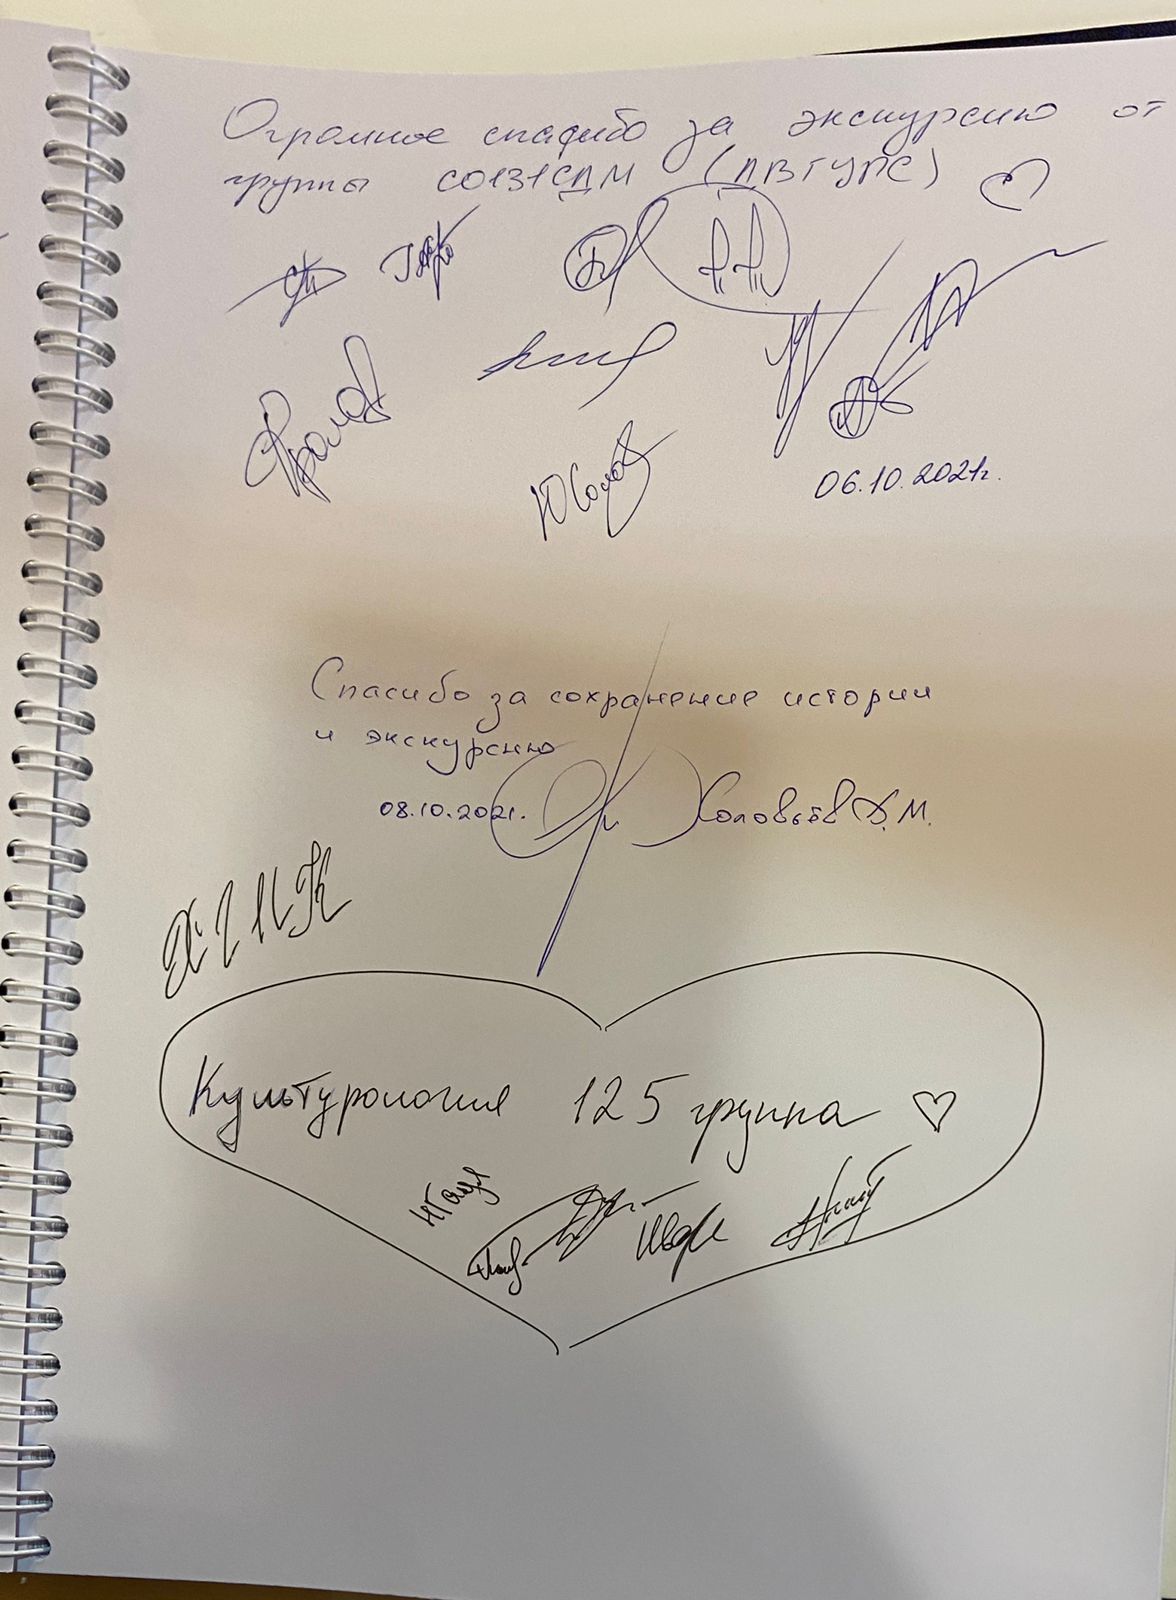 Огромное спасибо за экскурсию от
группы СО131СДМ (ДВГУПС)
Фролов
ЮСолов
06.10.2021г.
Спасибо за сохранение истории
и экскурсию
08.10.2021г.
Соловьёв Д.М.
ХГИК
Культурология 125 группа